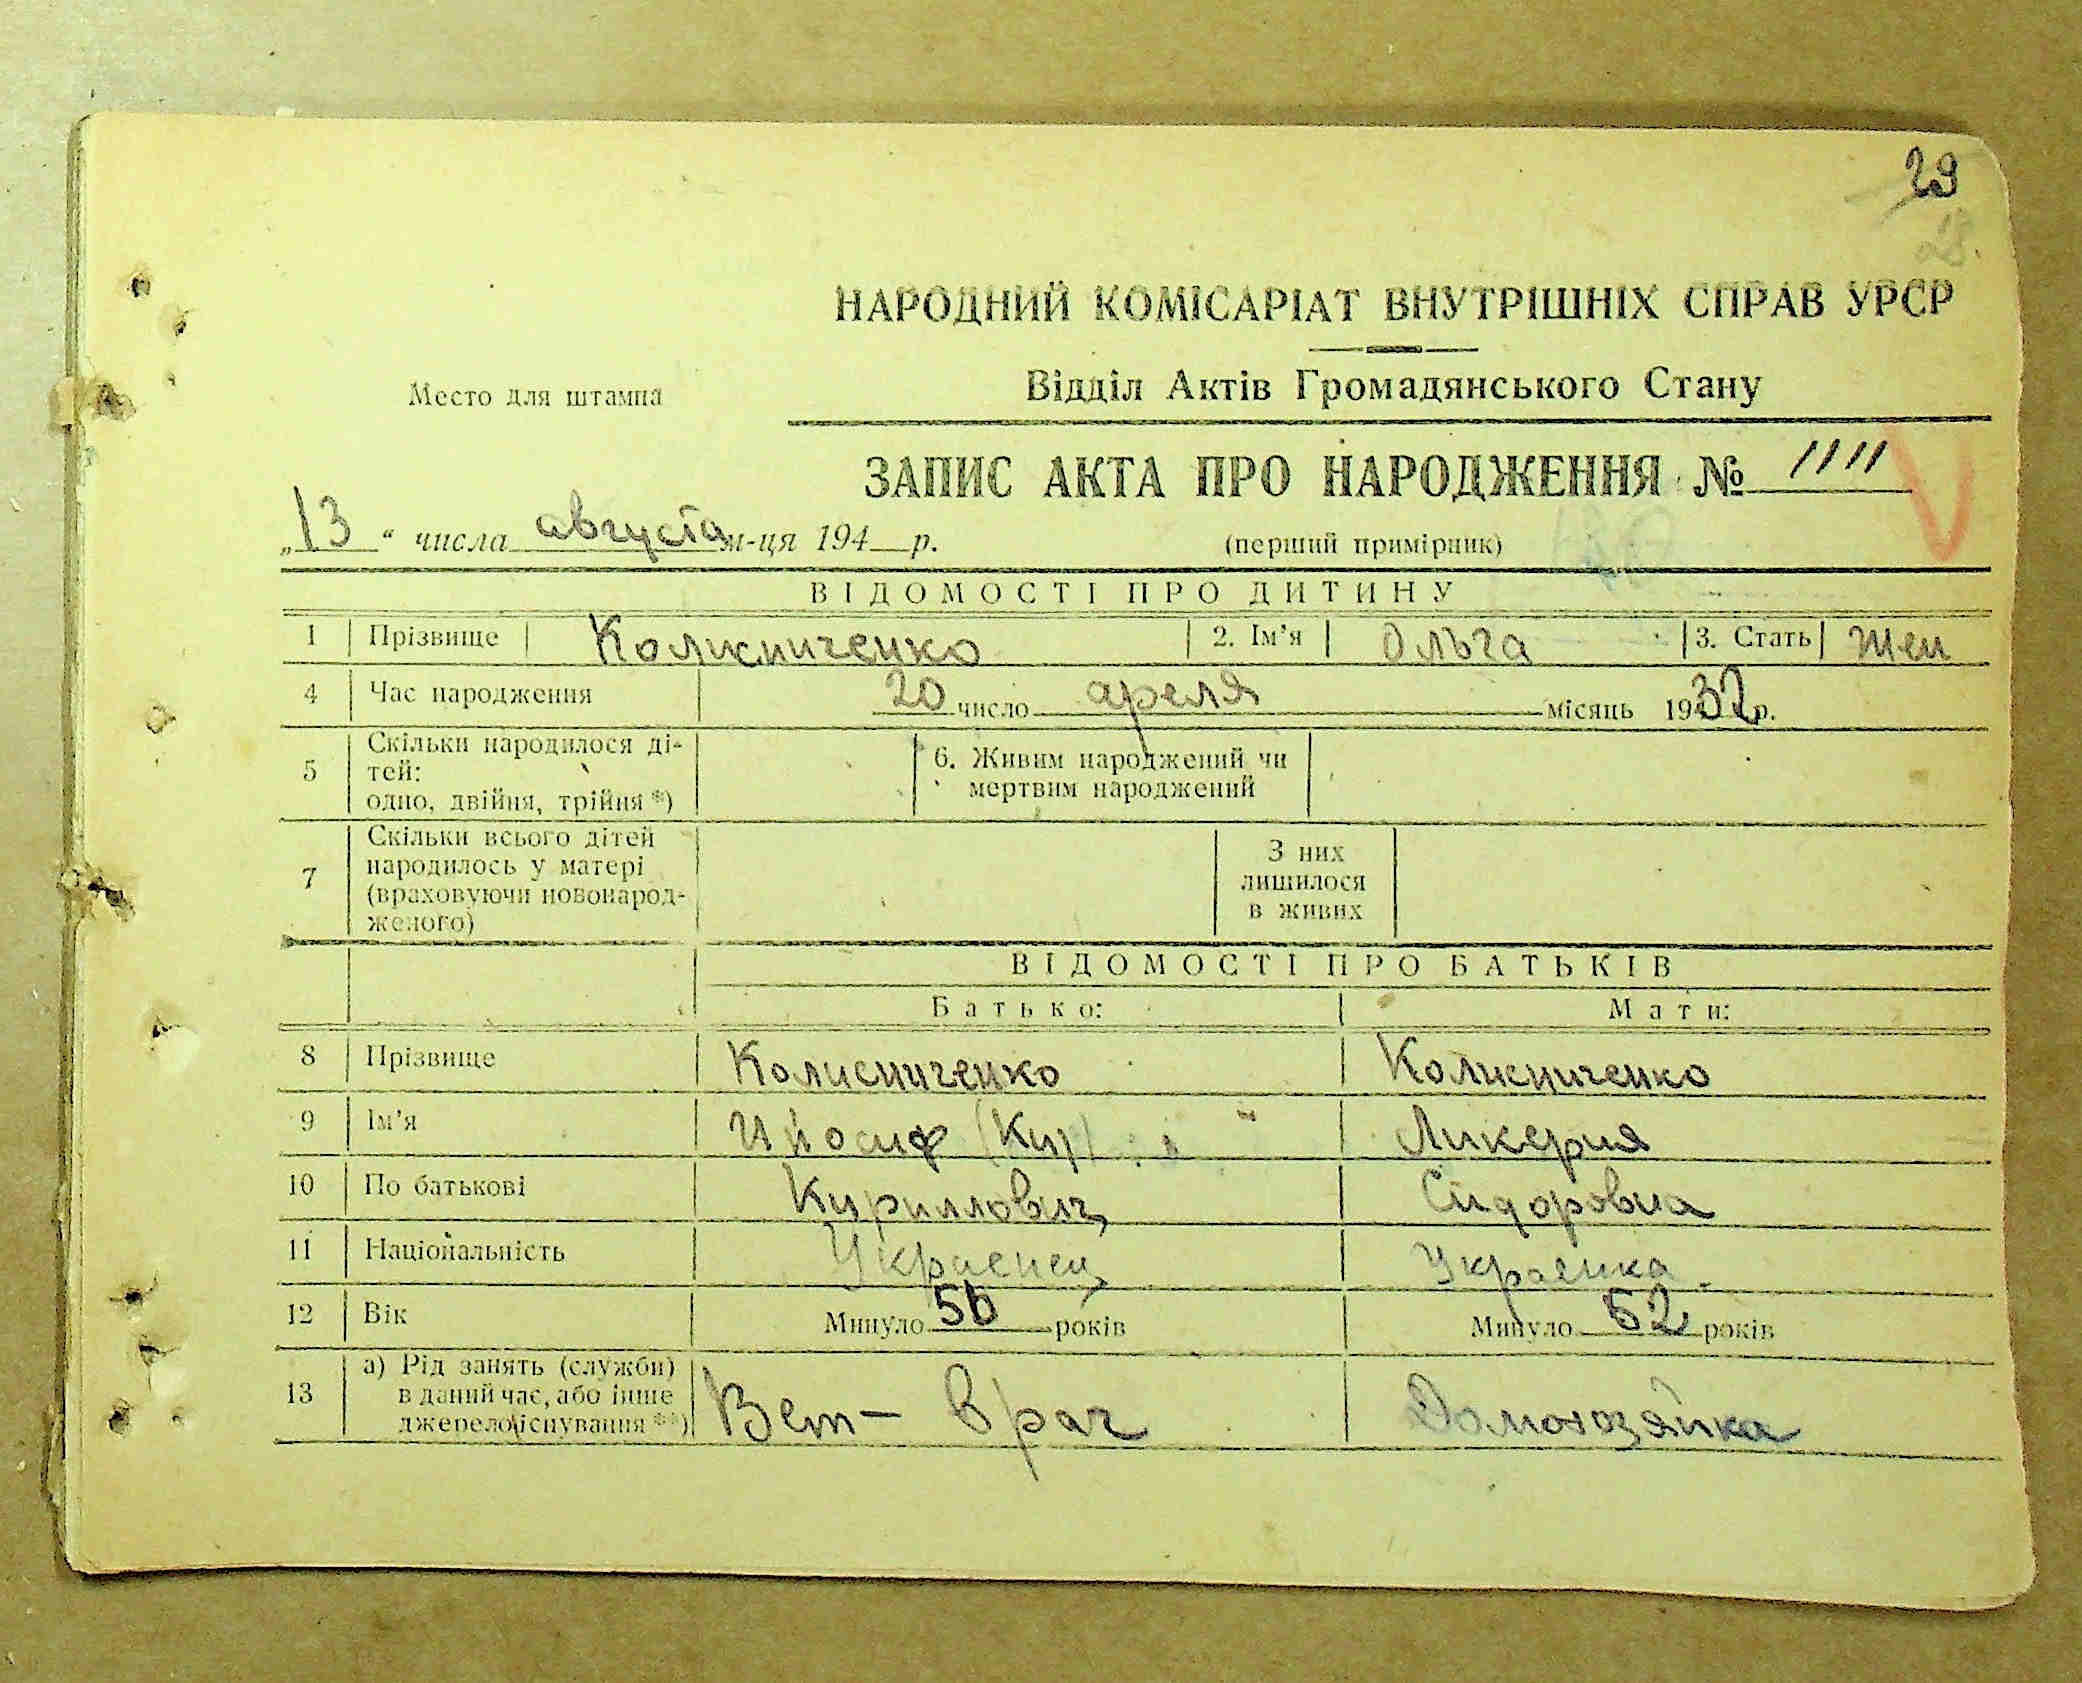 29
28.
НАРОДНИЙ КОМІСАРІАТ ВНУТРІШНІХ СПРАВ УРСР
Место для штампа
Відділ Актів Громадянського Стану
ЗАПИС АКТА ПРО НАРОДЖЕННЯ № 1111
„13“ числа августа м-ця 194 р.
(перший примірник)
ВІДОМОСТІ ПРО ДИТИНУ
1 Прізвище Колисниченко 2. Ім’я Ольга 3. Стать Жен
4 Час народження 20 число апреля місяць 1932 р.
5 Скільки народилося ді-
тей:
одно, двійня, трійня *)
6. Живим народжений чи
мертвим народжений
7 Скільки всього дітей
народилось у матері
(враховуючи новонарод-
женого)
З них
лишилося
в живих
ВІДОМОСТІ ПРО БАТЬКІВ
Батько: Мати:
8 Прізвище Колисниченко Колисниченко
9 Ім’я Ийосиф (Кир Ликерия
10 По батькові Кириллович Сидоровна
11 Національність Украенец Украенка
12 Вік Минуло 56 років Минуло 52 років
13 а) Рід занять (служби)
в даний час, або інше
джерело існування **)
Вет- врач Домохозяйка